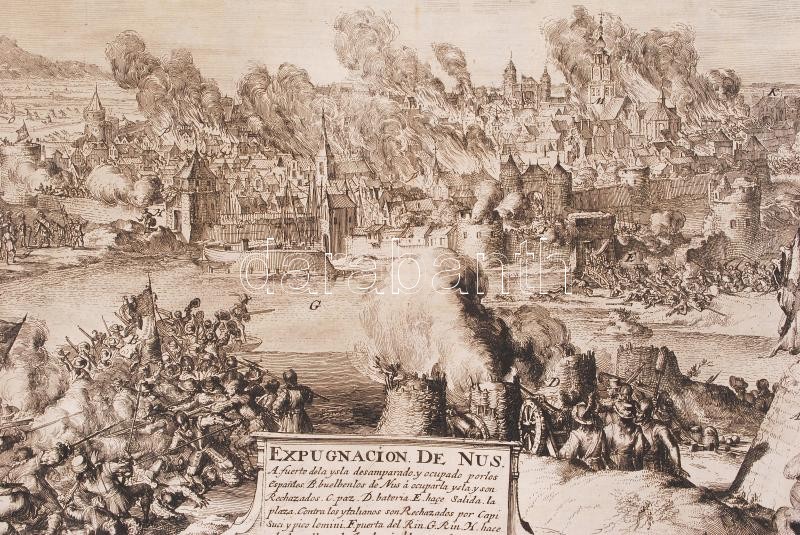 darabanth
M
K
G
D
EXPUGNACION. DE NUS.
A. fuerte de la ysla desamparado, y ocupado por los
Españoles. B. buelbenlos de Nus á ocupar la ysla y son
Rechazados. C. paz. D. bateria. E. hace Salida. la
plaza. Contra los ytalianos son Rechazados por Capi
Suci y pico lomini. F. puerta del Rin. G. Rin. H. hace